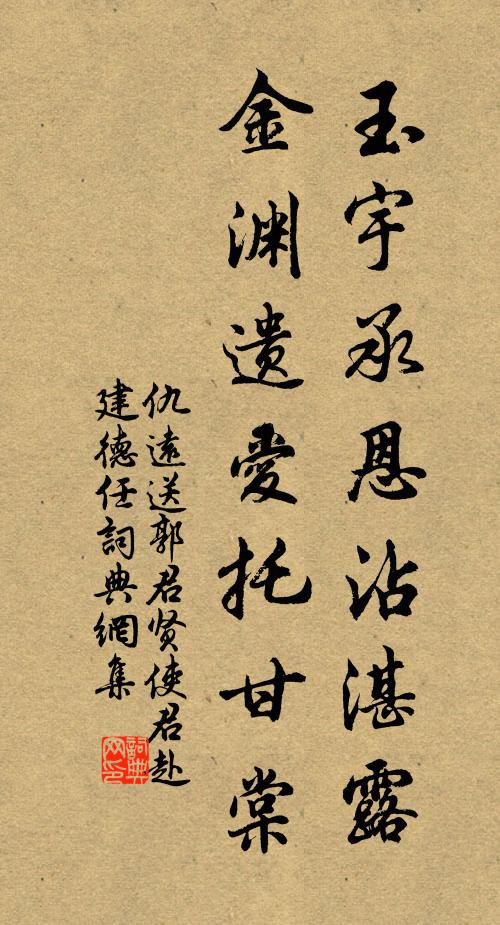 玉宇承恩沾湛露
金渊遗爱托甘棠
仇遠送郭君贤使君赴
建德任詞典網集
詞典
网印